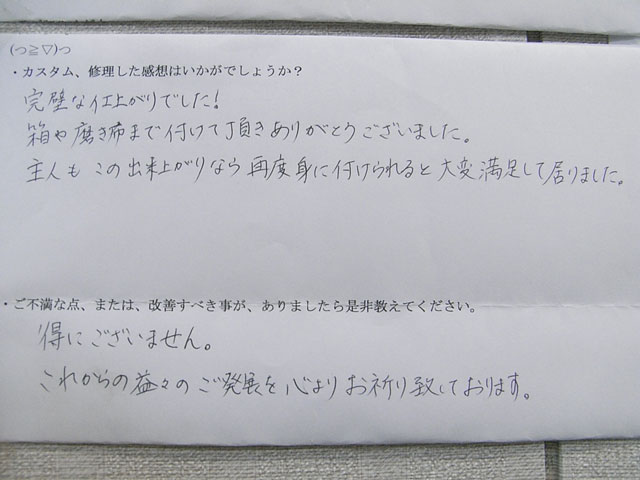 (っ≧▽)っ
・カスタム、修理した感想はいかがでしょうか？
完璧な仕上がりでした！
箱や磨き布まで付けて頂きありがとうございました。
主人もこの出来上がりなら再度身に付けられると大変満足して居りました。
・ご不満な点、または、改善すべき事が、ありましたら是非教えてください。
得にございません。
これからの益々のご発展を心よりお祈り致しております。